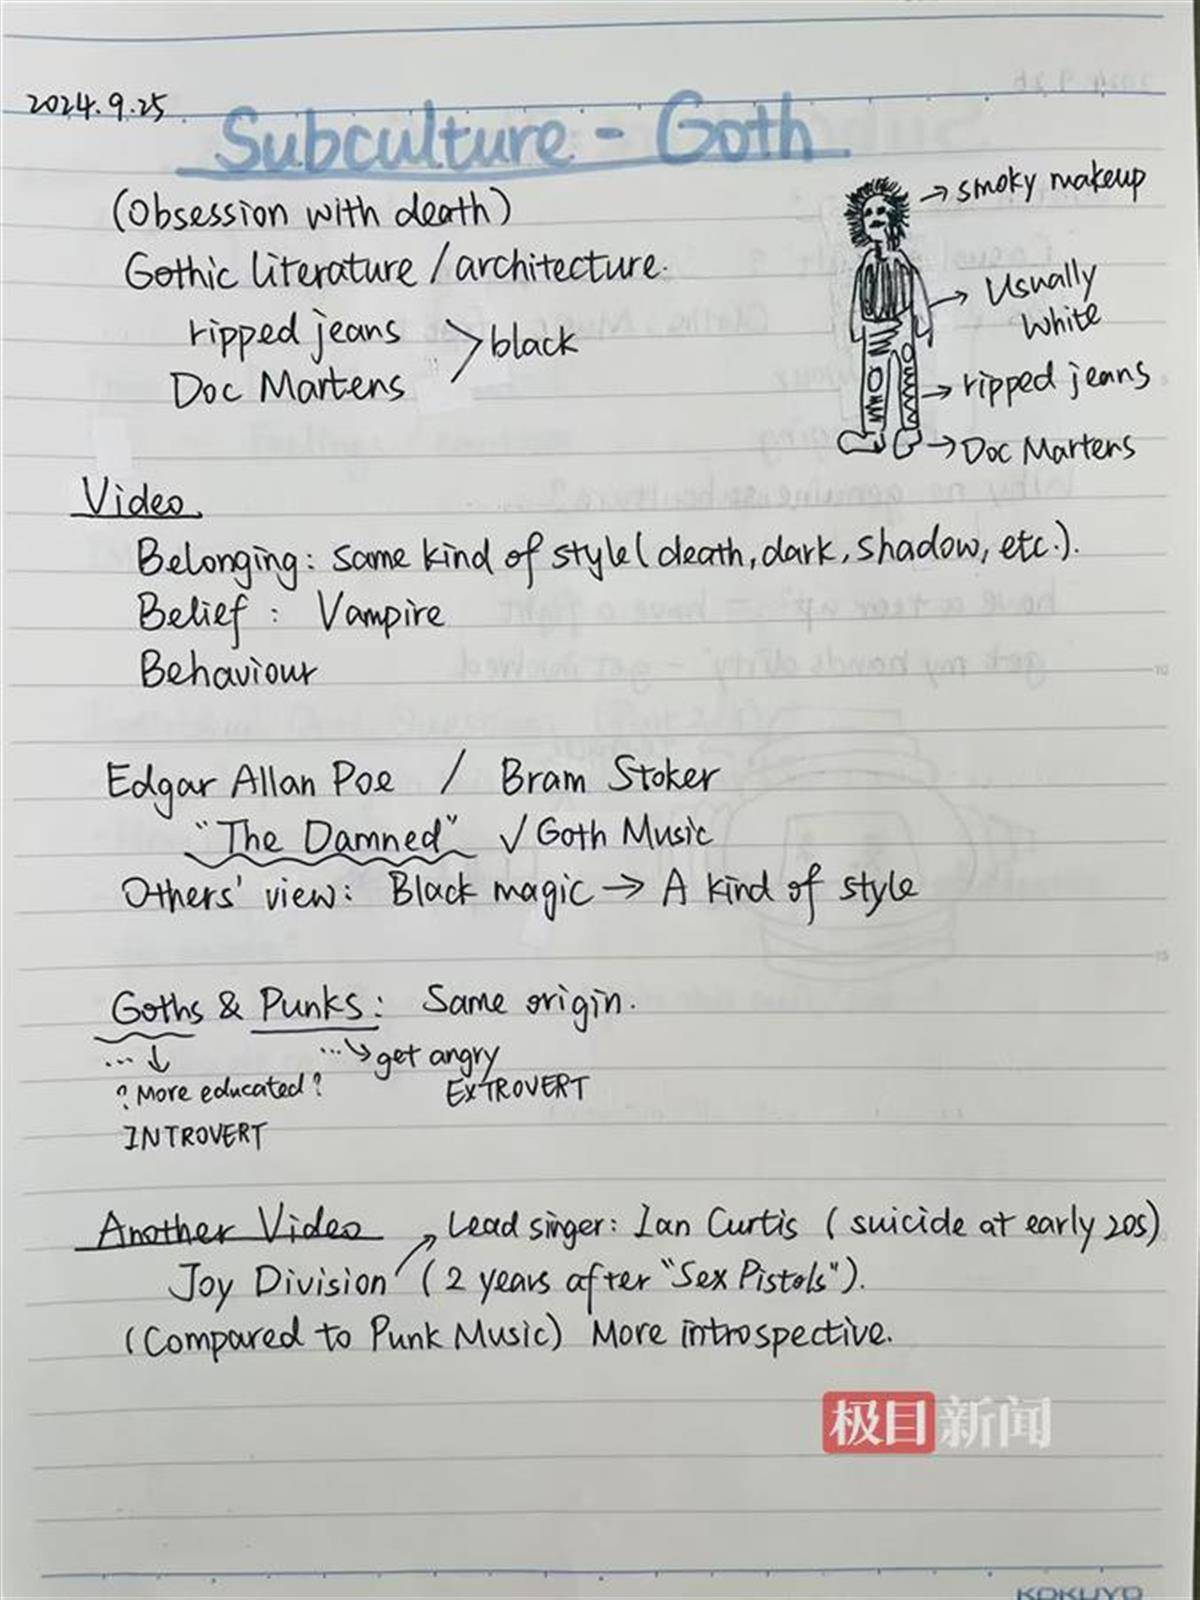 2024.9.25
Subculture - Goth
(Obsession with death)
Gothic literature / architecture.
ripped jeans > black
Doc Martens
→ smoky makeup
→ Usually
white
→ ripped jeans
→ Doc Martens
Video
Belonging: same kind of style (death, dark, shadow, etc.).
Belief : Vampire
Behaviour
Edgar Allan Poe / Bram Stoker
"The Damned" √ Goth Music
Others' view: Black magic → A kind of style
Goths & Punks: Same origin.
... ↓ ... ↘ get angry
? More educated? EXTROVERT
INTROVERT
Another Video → Lead singer: Ian Curtis (suicide at early 20s)
Joy Division (2 years after "Sex Pistols").
(Compared to Punk Music) More introspective.
极目新闻
KOKUYO